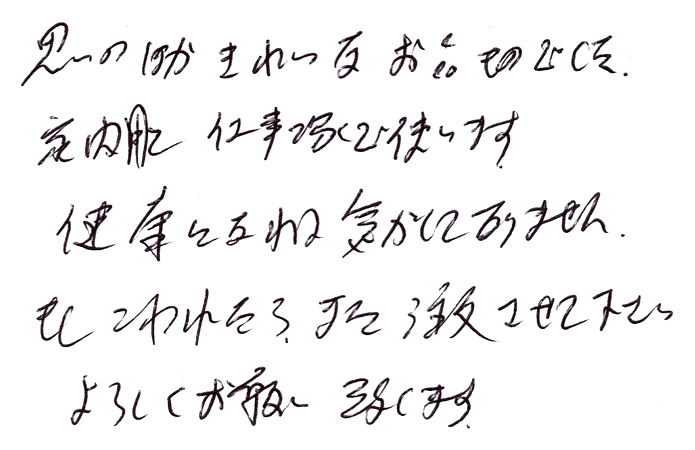 思いのほかきれいなお品ものでした.
室内用に 仕事場で使います
健康になれる気がしてなりません.
もしこわれたら、また注文させて下さい
よろしくお願い致します.